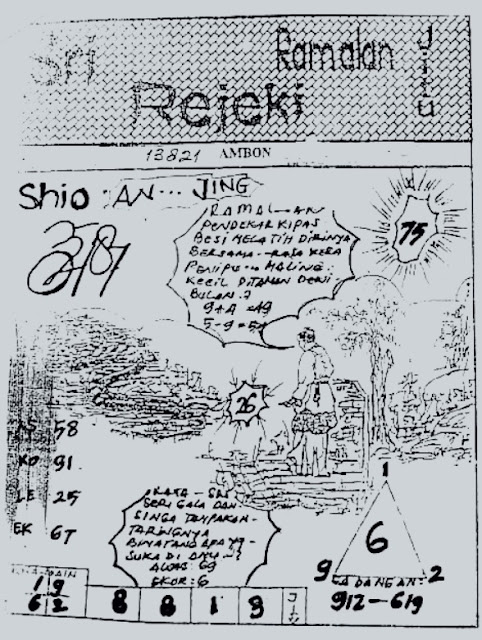 Sri
Ramalan
Jitu
Rejeki
13821 AMBON
Shio : AN... JING
RAMAL-AN
PENDEKAR KIPAS
BESI MELATIH DIRINYA
BERSAMA--RAJA KERA
PENIPU...MALING.
KECIL DITAMAN DEWI
BULAN.?
9+A =49
5-9=5A
75
26
AS 58
KO 91
LE 25
EK 67
KATA - SRI
SERIGALA DAN
SINGA TAMPAKAN-
TARINGNYA
BINATANG APA YG-
SUKA DI ADU-?
AWAS: 69
EKOR: 6
1
6
9 2
CADANGAN:
912-619
MAIN
1 9
6 2
8 8 1 9